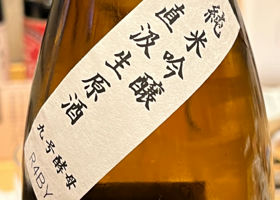 純米吟醸
直汲生原酒
九号酵母
R4BY